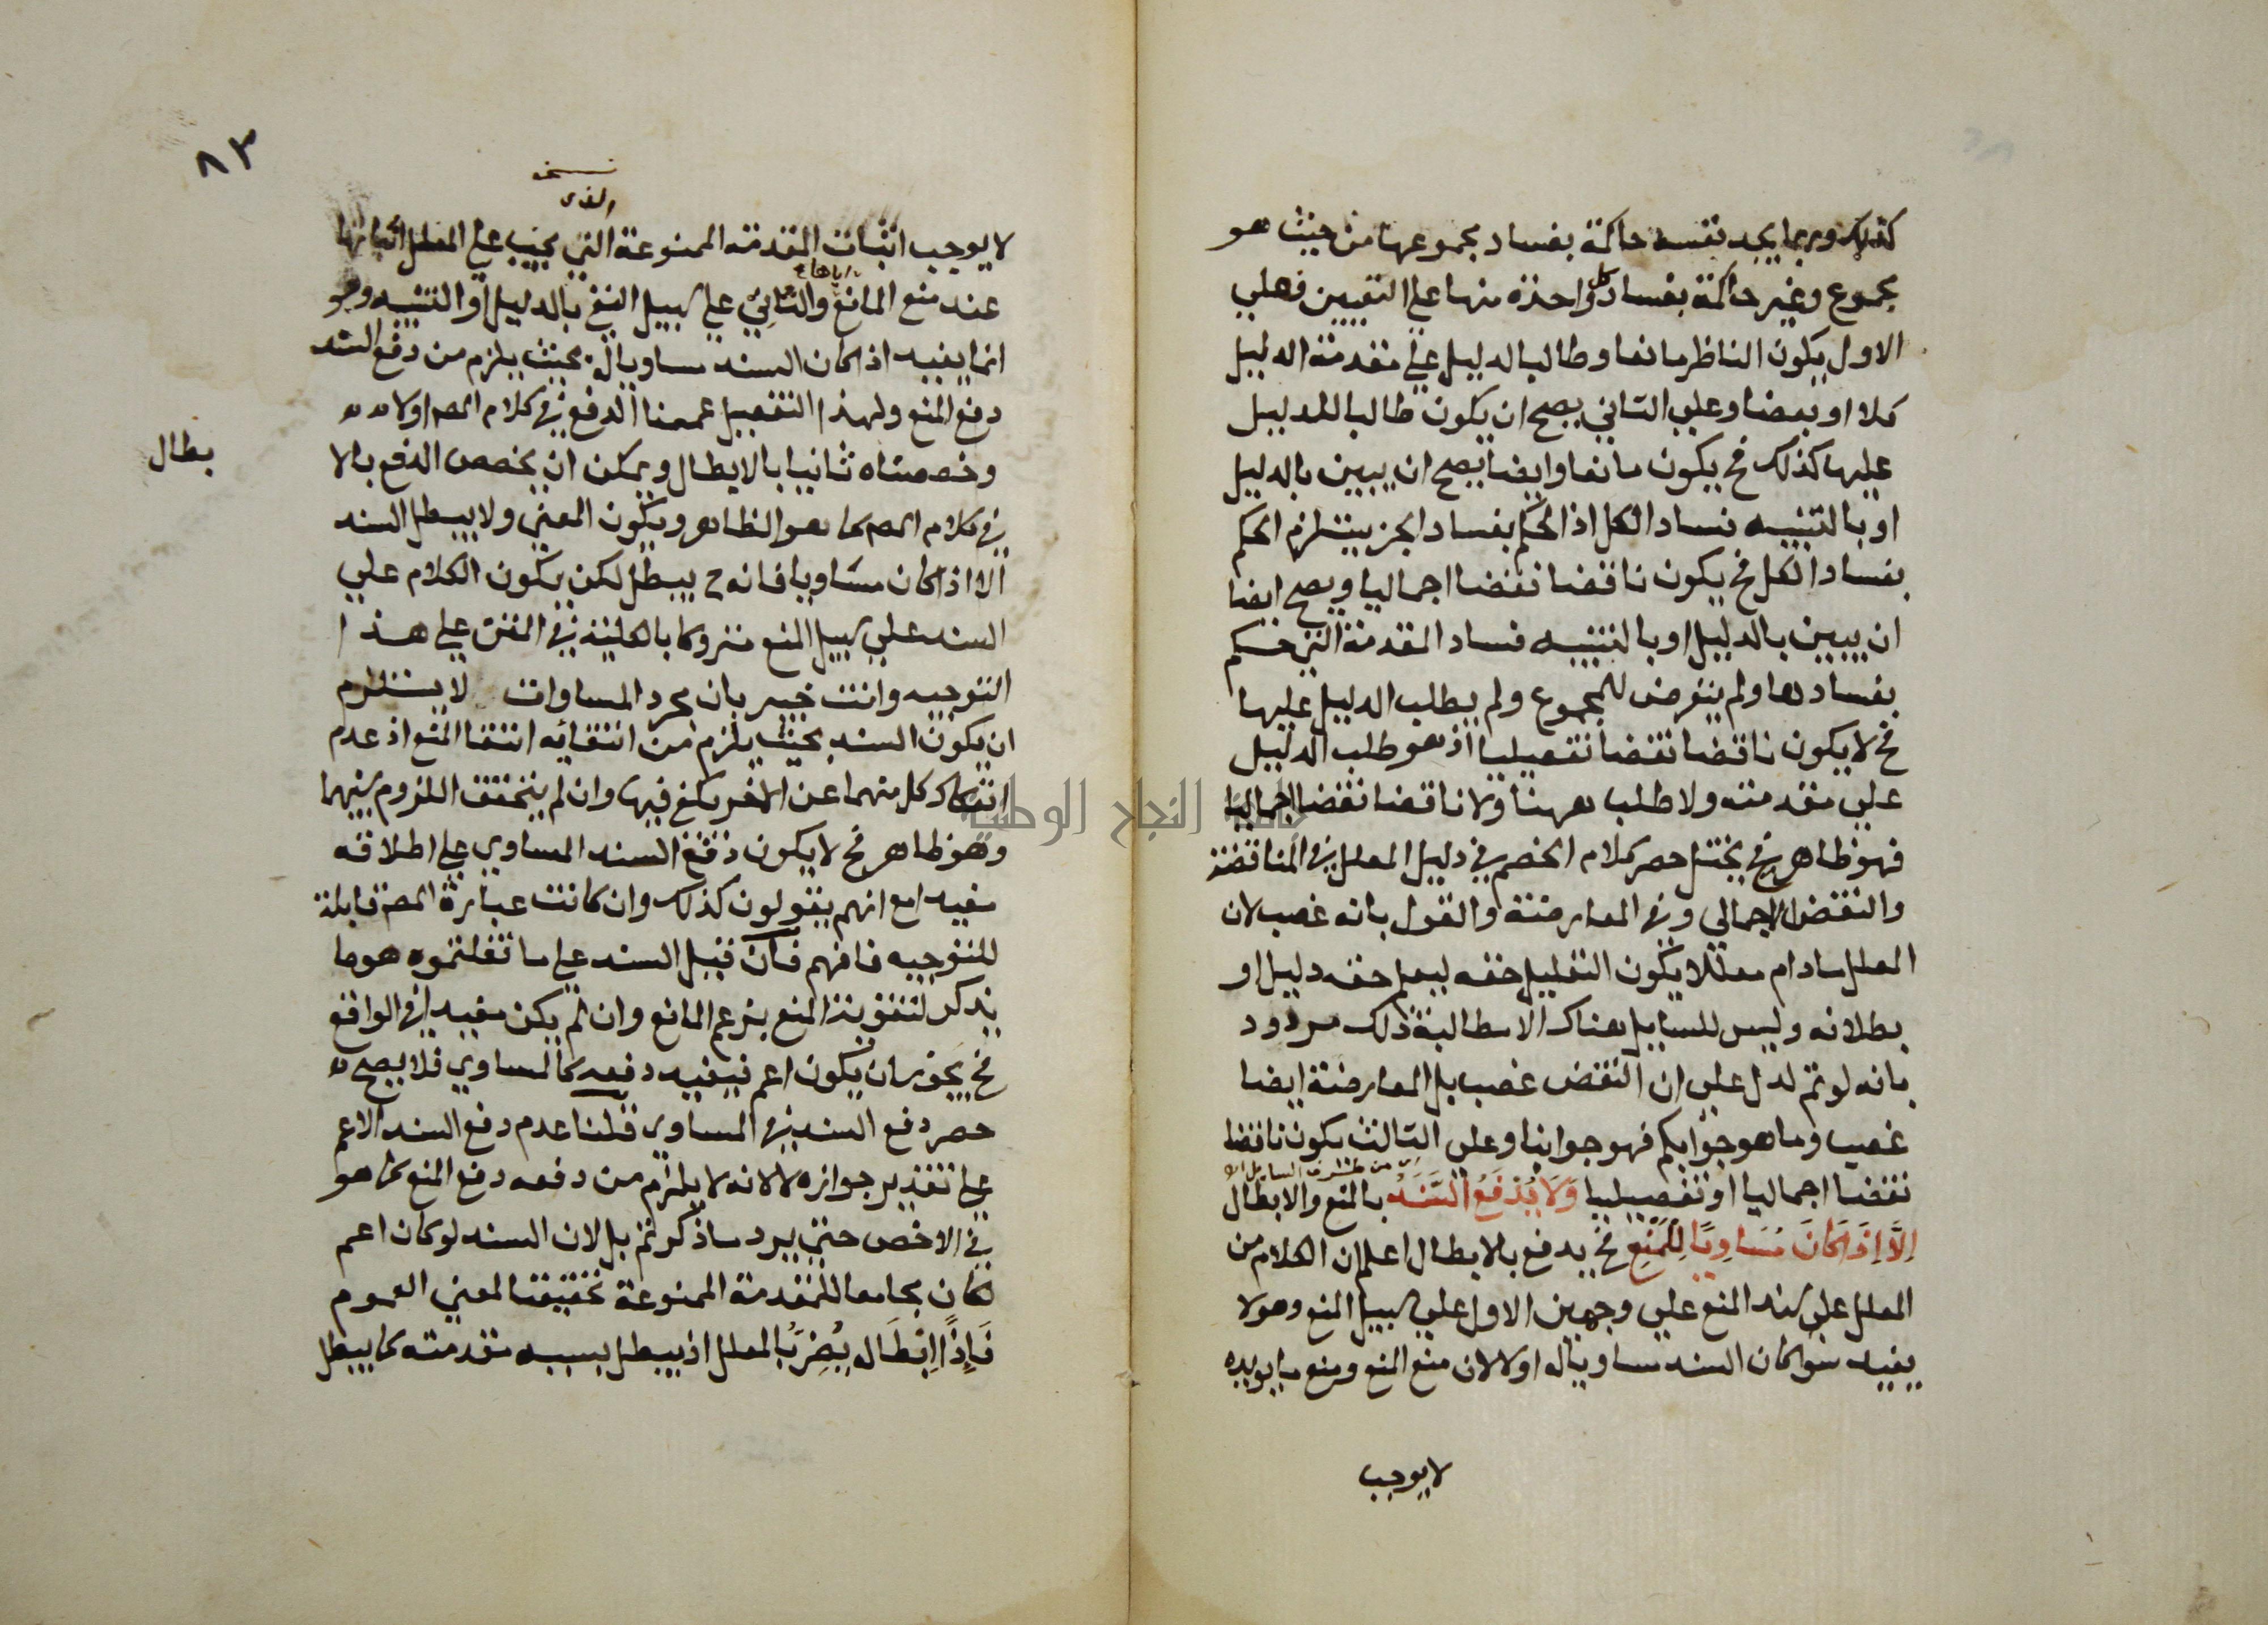 كذلك وربما يجد نفسه حاكمة بفساد مجموعها من حيث هو
مجموع وغير حاكمة بفساد كل واحدة منها على التعيين فعلي
الاول يكون الناظر مانعا وطالبا لدليل على مقدمة الدليل
كلا او بعضا وعلي الثاني يصح ان يكون طالبا للدليل
عليها كذلك فح يكون مانعا وايضا يصح ان يبين بالدليل
او بالتنبيه فساد الكل اذ الحكم بفساد الجزء يستلزم الحكم
بفساد الكل فح يكون ناقضا نقضا اجماليا ويصح ايضا
ان يبين بالدليل او بالتنبيه فساد المقدمة التي حكم
بفسادها ولم يتعرض للمجموع ولم يطلب الدليل عليها
فح لا يكون ناقضا نقضا تفصيليا اذ هو طلب الدليل
علي مقدمته ولا طلب ههنا ولا ناقضا نقضا اجماليا
فهو ظاهر فح يختل حصر كلام الخصم في دليل المعلل في المناقضة
والنقض الاجمالي وفي المعارضة والقول بانه غصب لان
المعلل مادام معللا يكون التعليل حقه ليعلم حقه دليل او
بطلانه وليس للسايل هناك الا مطالبة ذلك مردود
بانه لو تم لدل علي ان النقض غصب بل المعارضة ايضا
غصب وما هو جوابكم فهو جوابنا وعلى الثالث يكون ناقضا
نقضا اجماليا او تفصيليا وَلَا يُدْفَعُ السَّنَدُ بالمنع والابطال
اِلَّا اِذَا كَانَ مُسَاوِيًا لِلْمَنْعِ فح يدفع بالابطال اعلم ان الكلام من
المعلل على سند المنع علي وجهين الاول علي سبيل المنع وهو لا
يفيد سوا كان السند مساويا له اولا لان منع المنع ومنع ما يويده
لا يوجب
٨٣
نسخه
الذي
لا يوجب اثبات المقدمة الممنوعة التي يجب على المعلل اثباتها
عند منع المانع والثاني علي سبيل النفي بالدليل او التنبيه وهو
انما يفيد اذا كان السند مساويا له بحيث يلزم من دفع السند
دفع المنع ولهذا التفصيل عممنا الدفع في كلام المص اولا
وخصصناه ثانيا بالابطال ويمكن ان يخصص الدفع بالا
بطال
في كلام المص كما هو الظاهر ويكون المعني ولا يبطل السند
الا اذا كان مساويا فانه ح يبطل لكن يكون الكلام علي
السند علي سبيل المنع متروكا بالكلية في المتن علي هذا
التوجيه وانت خبير بان مجرد المساوات لا يستلزم
ان يكون السند بحيث يلزم من انتفائه انتفا المنع اذ عدم
انفكاك كل منهما عن الاخر يكفي فيها وان لم يتحقق اللزوم بينهما
وهو ظاهر فح لا يكون دفع السند المساوي علي اطلاقه
مفيدا مع انهم يقولون كذلك وان كانت عبارة المص قابلة
للتوجيه فافهم فان قيل السند علي ما نقلتموه هو ما
يذكر لتقوية المنع بزعم المانع وان لم يكن مفيدا في الواقع
فح يجوز ان يكون اعم فيفيد دفعه كالمساوي فلا يصح
حصر دفع السند في المساوي قلنا عدم دفع السند الاعم
علي تقدير جوازه لا لانه لا يلزم من دفعه دفع المنع كما هو
في الاخص حتي يرد ما ذكرتم بل لان السند لو كان اعم
لكان مجامعا للمقدمة الممنوعة تحقيقا لمعني العموم
فَاِذًا اِبْطَاله يُضِرُّ بالمعلل اذ يبطل بسببه مقدمته كما يبطل